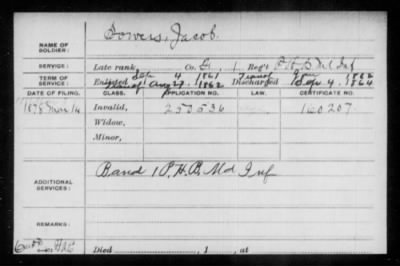 NAME OF SOLDIER: Bowers, Jacob.
SERVICE: Late rank, Co. G, 1 Reg't P.H.B. Md Inf
TERM OF SERVICE: Enlisted Sep 4 1861 Discharged 1862
Transf Aug 27, 1862 Sep. 4, 1864
DATE OF FILING. CLASS. APPLICATION NO. LAW. CERTIFICATE NO.
1878 Mch 14 Invalid, 250536 160207.
Widow,
Minor,
ADDITIONAL SERVICES: Band 1 P.H.B. Md Inf
REMARKS:
Died , 1 , at